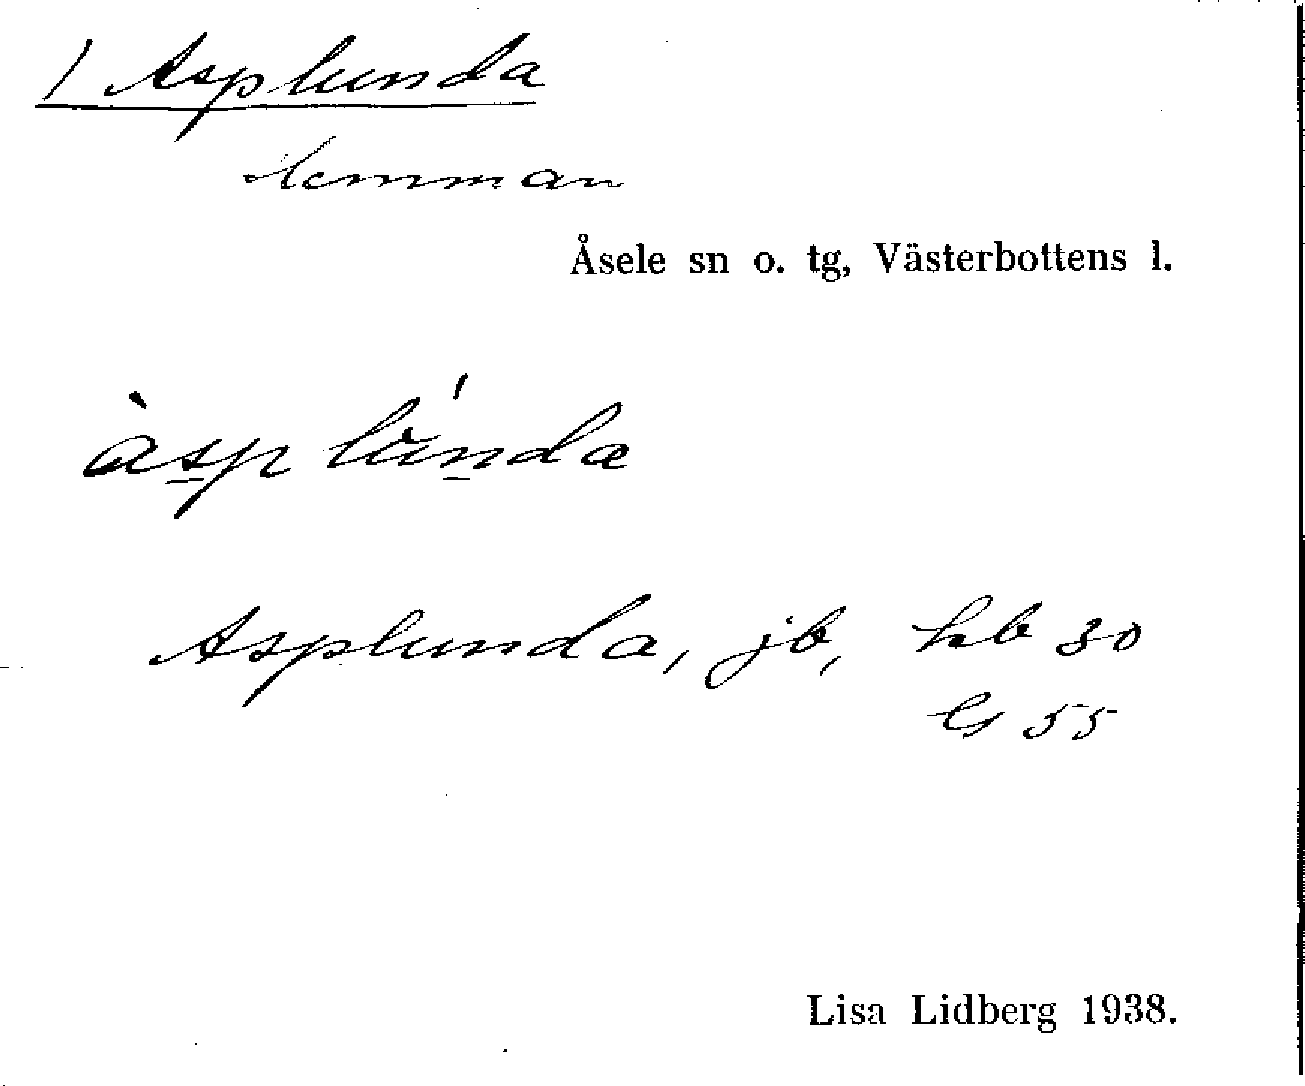 1 Asplunda
hemman
Åsele sn o. tg, Västerbottens l.
àsplúnda
Asplunda, jb, hb 30
G 55
Lisa Lidberg 1938.